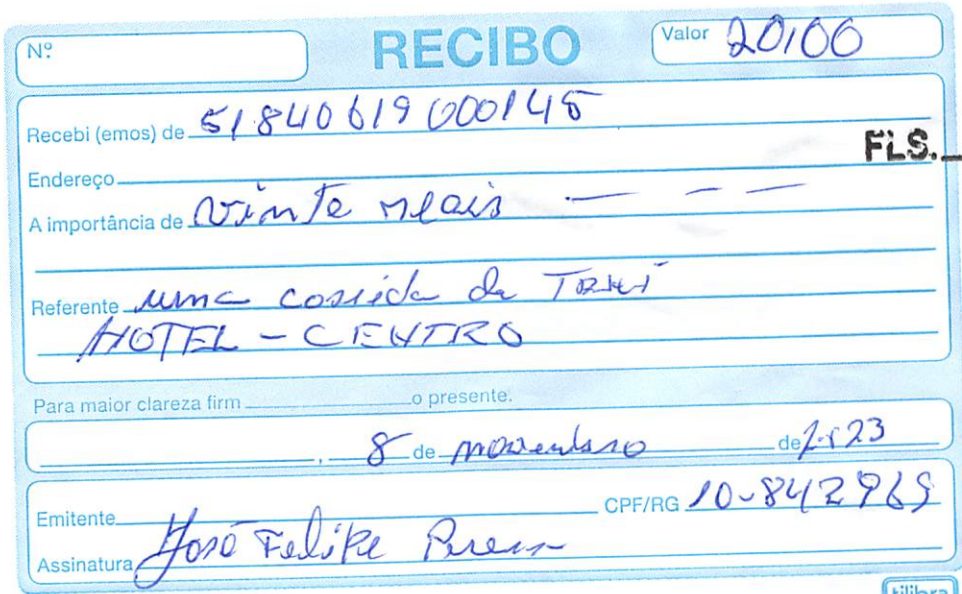 Nº RECIBO Valor 20,00
Recebi (emos) de 51840619000145
FLS.
Endereço
A importância de vinte reais — — —
Referente uma corrida de Taxi
HOTEL - CENTRO
Para maior clareza firm o presente.
, 8 de novembro de 2023
Emitente CPF/RG 10-842969
Assinatura José Felipe
tilibra